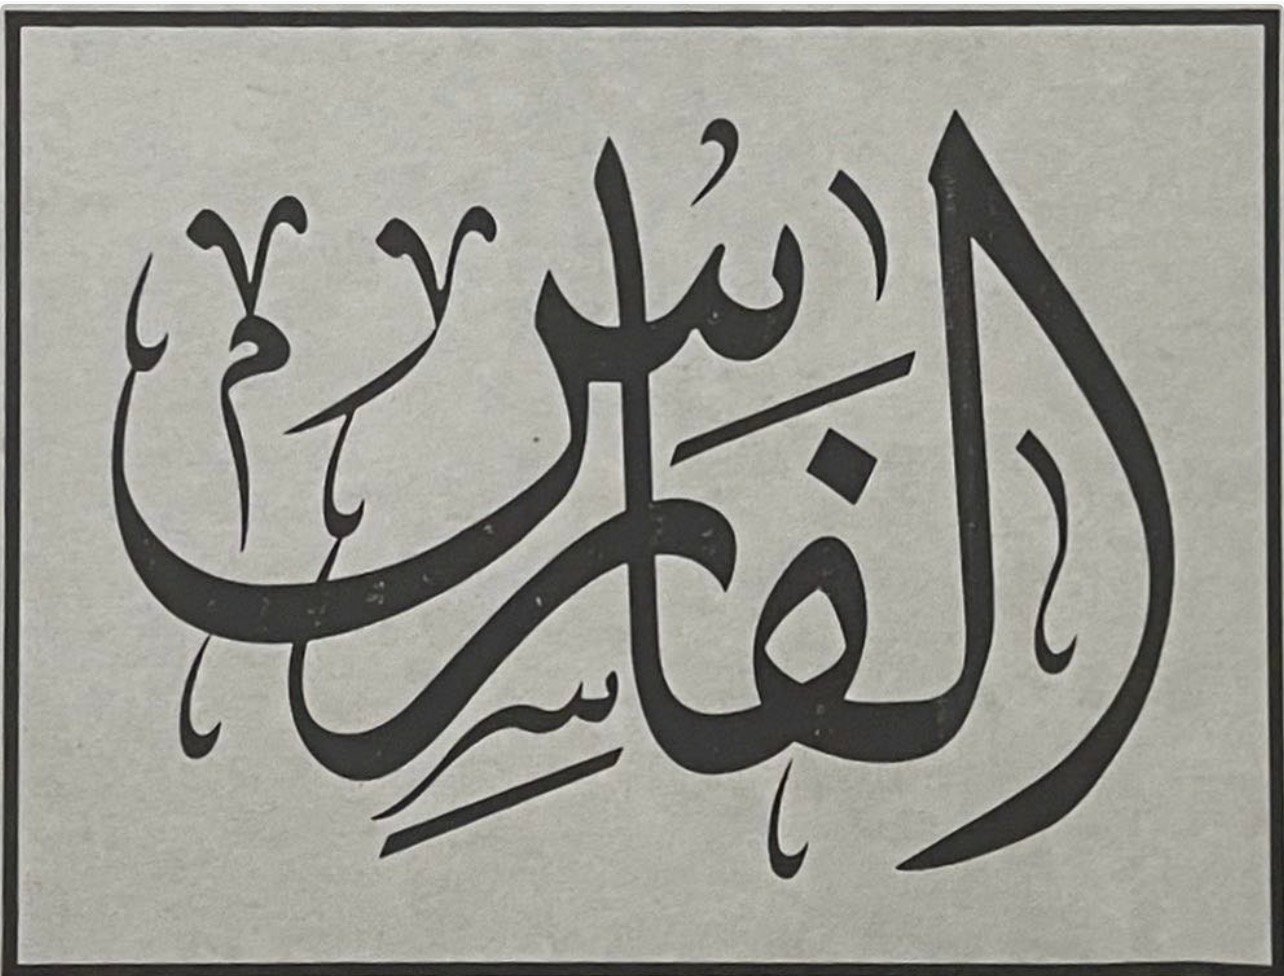 الفارس